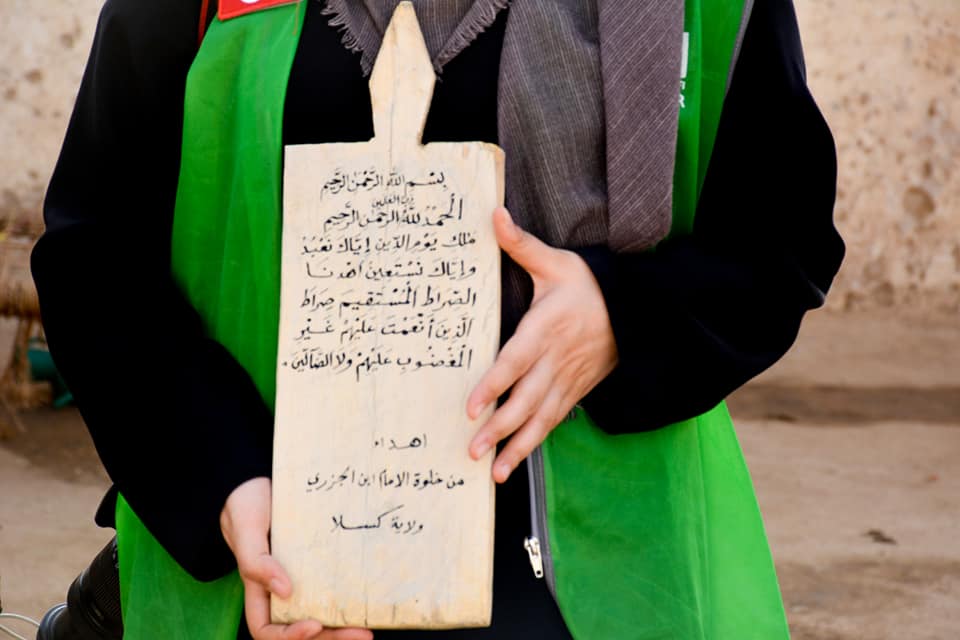 بِسْمِ اللَّهِ الرَّحْمَٰنِ الرَّحِيمِ
الْحَمْدُ لِلَّهِ رَبِّ الْعَالَمِينَ الرَّحْمَٰنِ الرَّحِيمِ
مَٰلِكِ يَوْمِ الدِّينِ إِيَّاكَ نَعْبُدُ
وَإِيَّاكَ نَسْتَعِينُ اهْدِنَا
الصِّرَاطَ الْمُسْتَقِيمَ صِرَاطَ
الَّذِينَ أَنْعَمْتَ عَلَيْهِمْ غَيْرِ
الْمَغْضُوبِ عَلَيْهِمْ وَلَا الضَّآلِّينَ.
اهداء
من خلوة الامام ابن الجزري
ولاية كسلا